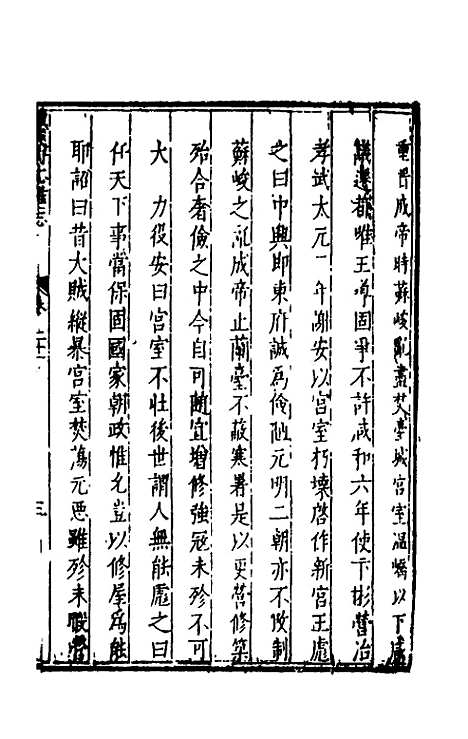 重晉成帝時蘇峻亂盡焚臺城宮室溫嶠以下咸
議遷都唯王導固爭不許咸和六年使卞彬營治
孝武太元二年謝安以宮室朽壞啓作新宮王彪
之曰中興即東府誠爲儉陋元明二朝亦不改制
蘇峻之亂成帝止蘭臺不蔽寒暑是以更營修築
殆合奢儉之中今自可隨宜增修強寇未殄不可
大 力役安曰宮室不壯後世謂人無能彪之曰
任天下事當保固國家朝政惟允豈以修屋爲能
耶詔曰昔大賊縱暴宮室焚蕩元惡雖殄未暇營